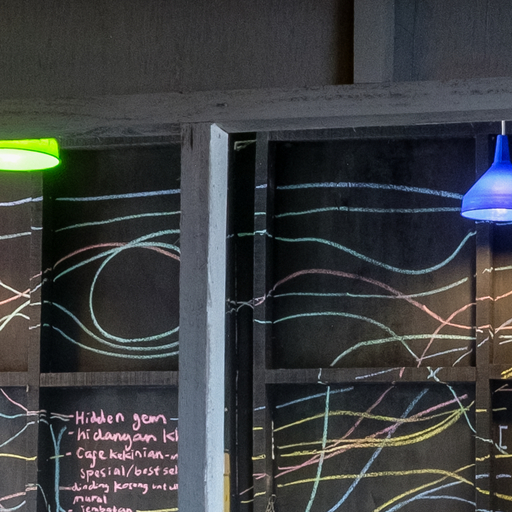 - Hidden gem
- hidangan
- Cafe kekinian-
spesial/best sel
dinding kosong untuk
mural
- jembatan